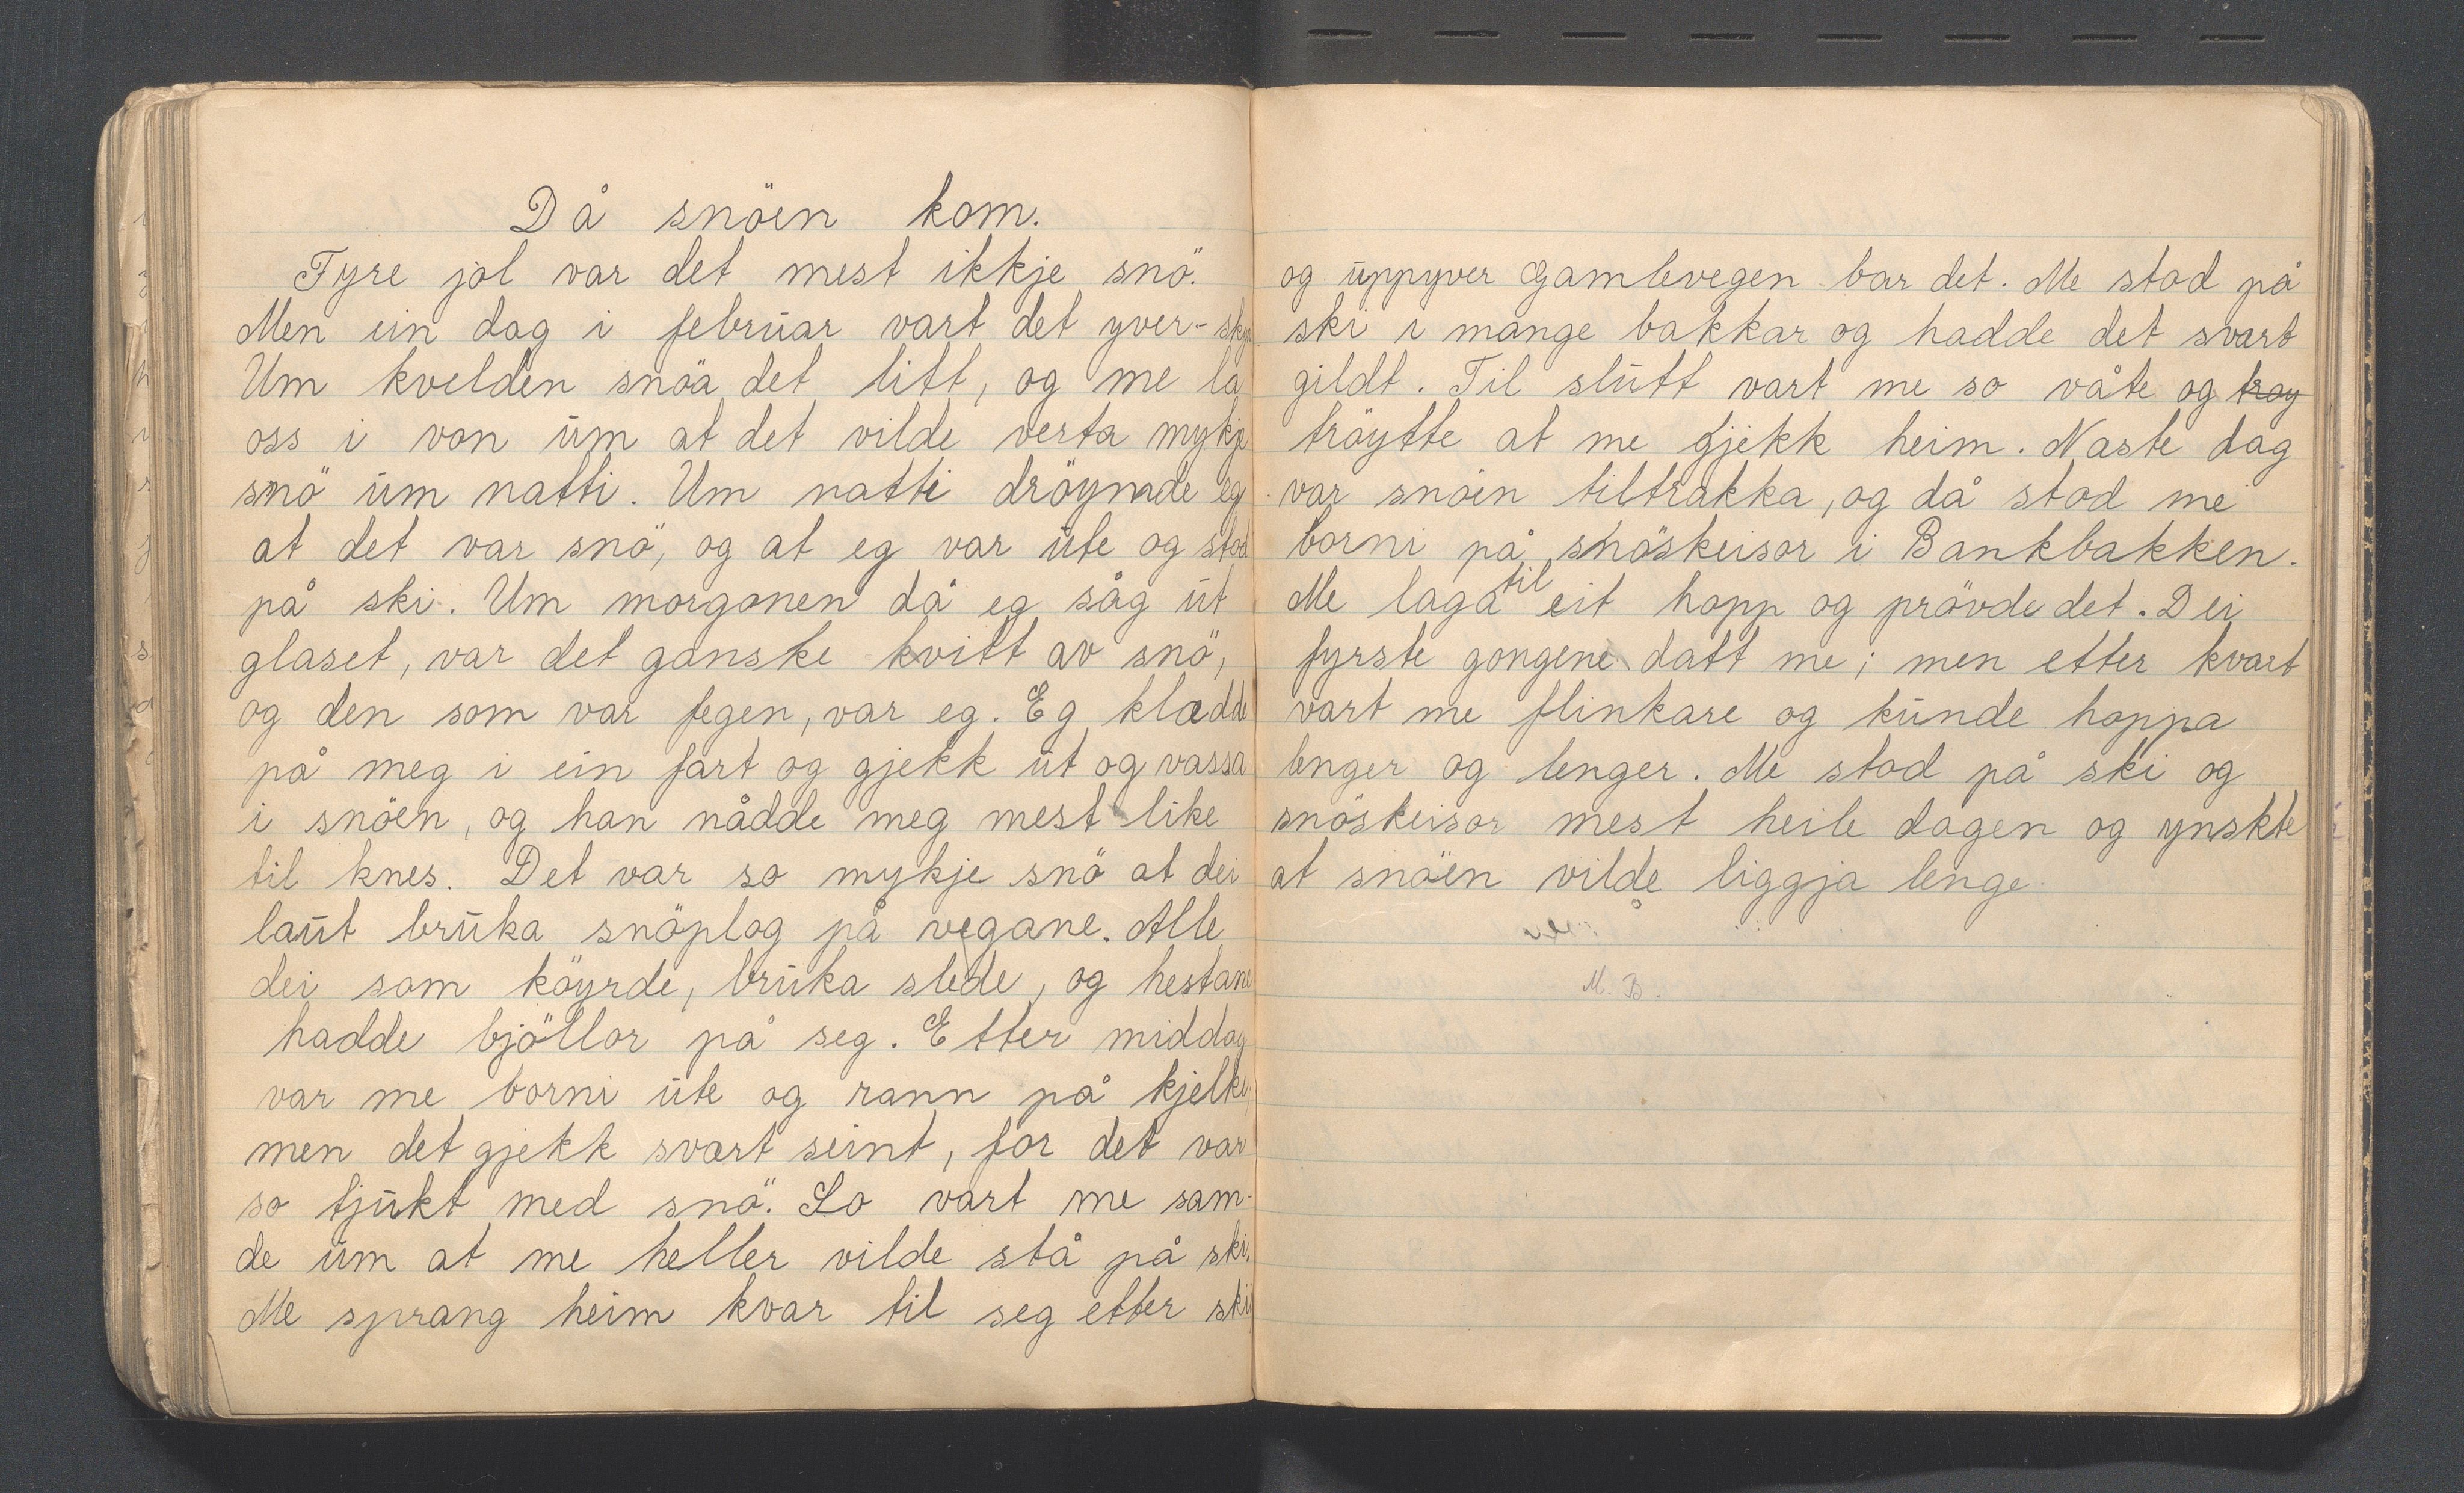 Då snöen kom.
Fyre jol var det mest ikkje snö.
Men ein dag i februar vart det yver-sky
Um kvelden snöa det litt, og me la
oss i von um at det vilde verta mykje
snö um natti. Um natti dröymde eg
at det var snö, og at eg var ute og stod
på ski. Um morgonen då eg såg ut
glaset, var det ganske kvitt av snö,
og den som var fegen, var eg. Eg klædde
på meg i ein fart og gjekk ut og vassa
i snöen, og han nådde meg mest like
til knes. Det var so mykje snö at dei
laut bruka snöplog på vegane. Alle
dei som köyrde, bruka slede, og hestane
hadde bjöllor på seg. Etter middag
var me borni ute og rann på kjelke,
men det gjekk svært seint, for det var
so tjukt med snö. So vart me sam-
de um at me heller vilde stå på ski.
Me sprang heim kvar til seg etter ski
og uppyver Gamlevegen bar det. Me stod på
ski i mange bakkar og hadde det svært
gildt. Til slutt vart me so våte og tray
tröytte at me gjekk heim. Næste dag
var snöen tiltrakka, og då stod me
borni på snöskeisor i Bankbakken.
Me laga til eit hopp og prövde det. Dei
fyrste gongene datt me; men etter kvart
vart me flinkare og kunde hoppa
lenger og lenger. Me stod på ski og
snöskeisor mest heile dagen og ynskte
at snöen vilde liggja lenge.
M. B.